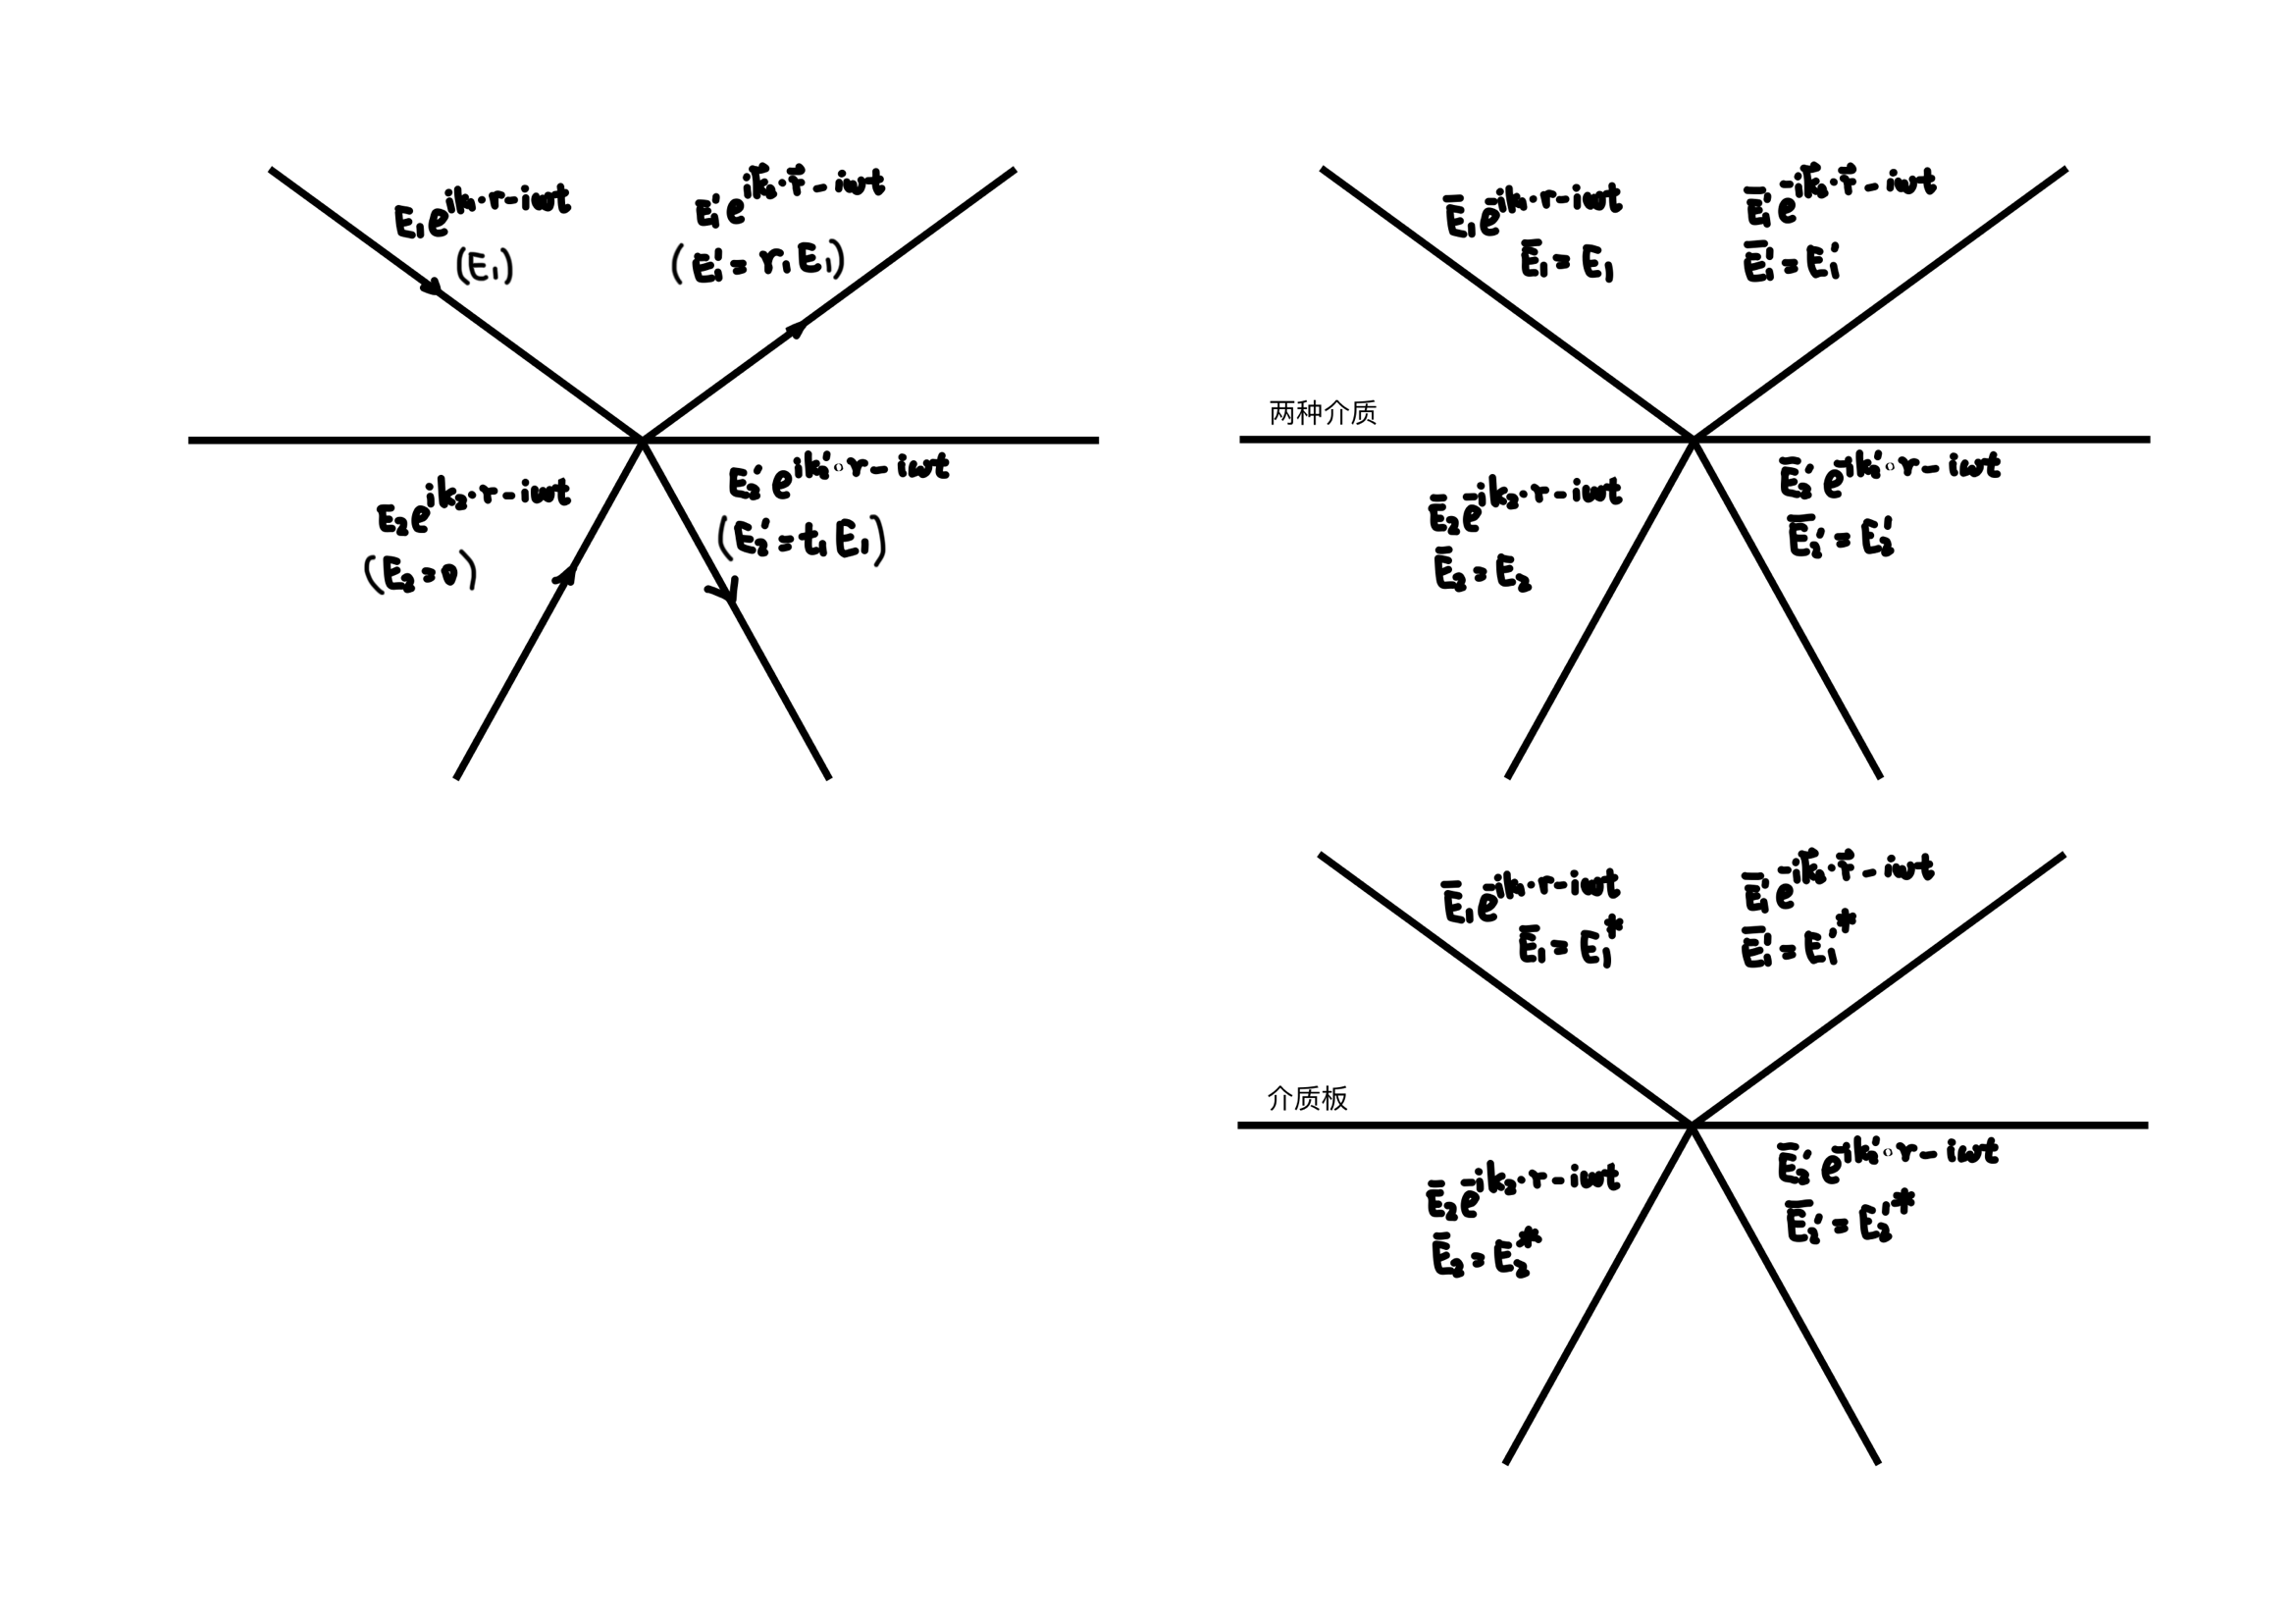 E₁e^{ik₁·r-iωt}
(E₁)
E₁'e^{ik̄₁·r̄-iωt}
(E₁'=r₁E₁)
E₂e^{ik₂·r-iωt}
(E₂=0)
E₂'e^{ik₂'∘r-iωt}
(E₂'=t₁E₁)
Ē₁e^{-ik₁·r-iωt}
Ē₁=E₁
Ē₁'e^{-ik̄₁·r̄-iωt}
Ē₁'=E₁'
两种介质
Ē₂e^{-ik₂·r-iωt}
Ē₂=E₂
Ē₂'e^{-ik₂'∘r-iωt}
Ē₂'=E₂'
Ē₁e^{-ik₁·r-iωt}
Ē₁=E₁*
Ē₁'e^{-ik̄₁·r̄-iωt}
Ē₁'=E₁'*
介质板
Ē₂e^{-ik₂·r-iωt}
Ē₂=E₂*
Ē₂'e^{-ik₂'∘r-iωt}
Ē₂'=E₂'*